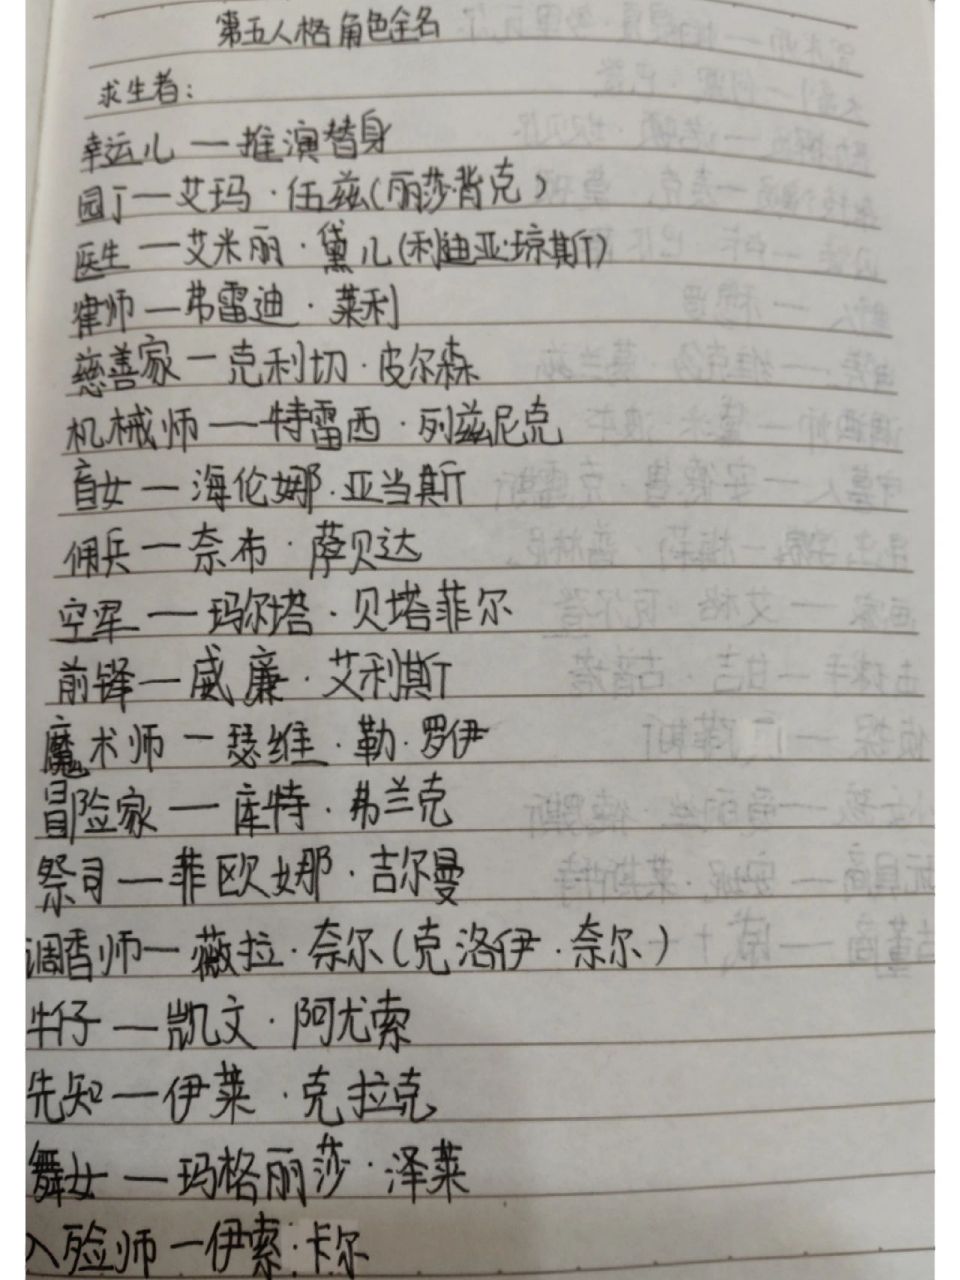 第五人格角色全名
求生者：
幸运儿—推演替身
园丁—艾玛·伍兹(丽莎·背克）
医生—艾米丽·黛儿(利迪亚·琼斯)
律师—弗雷迪·莱利
慈善家—克利切·皮尔森
机械师—特雷西·列兹尼克
盲女—海伦娜·亚当斯
佣兵—奈布·萨贝达
空军—玛尔塔·贝塔菲尔
前锋—威廉·艾利斯
魔术师—瑟维·勒·罗伊
冒险家—库特·弗兰克
祭司—菲欧娜·吉尔曼
调香师—薇拉·奈尔(克洛伊·奈尔）
牛仔—凯文·阿尤索
先知—伊莱·克拉克
舞女—玛格丽莎·泽莱
入殓师—伊索·卡尔